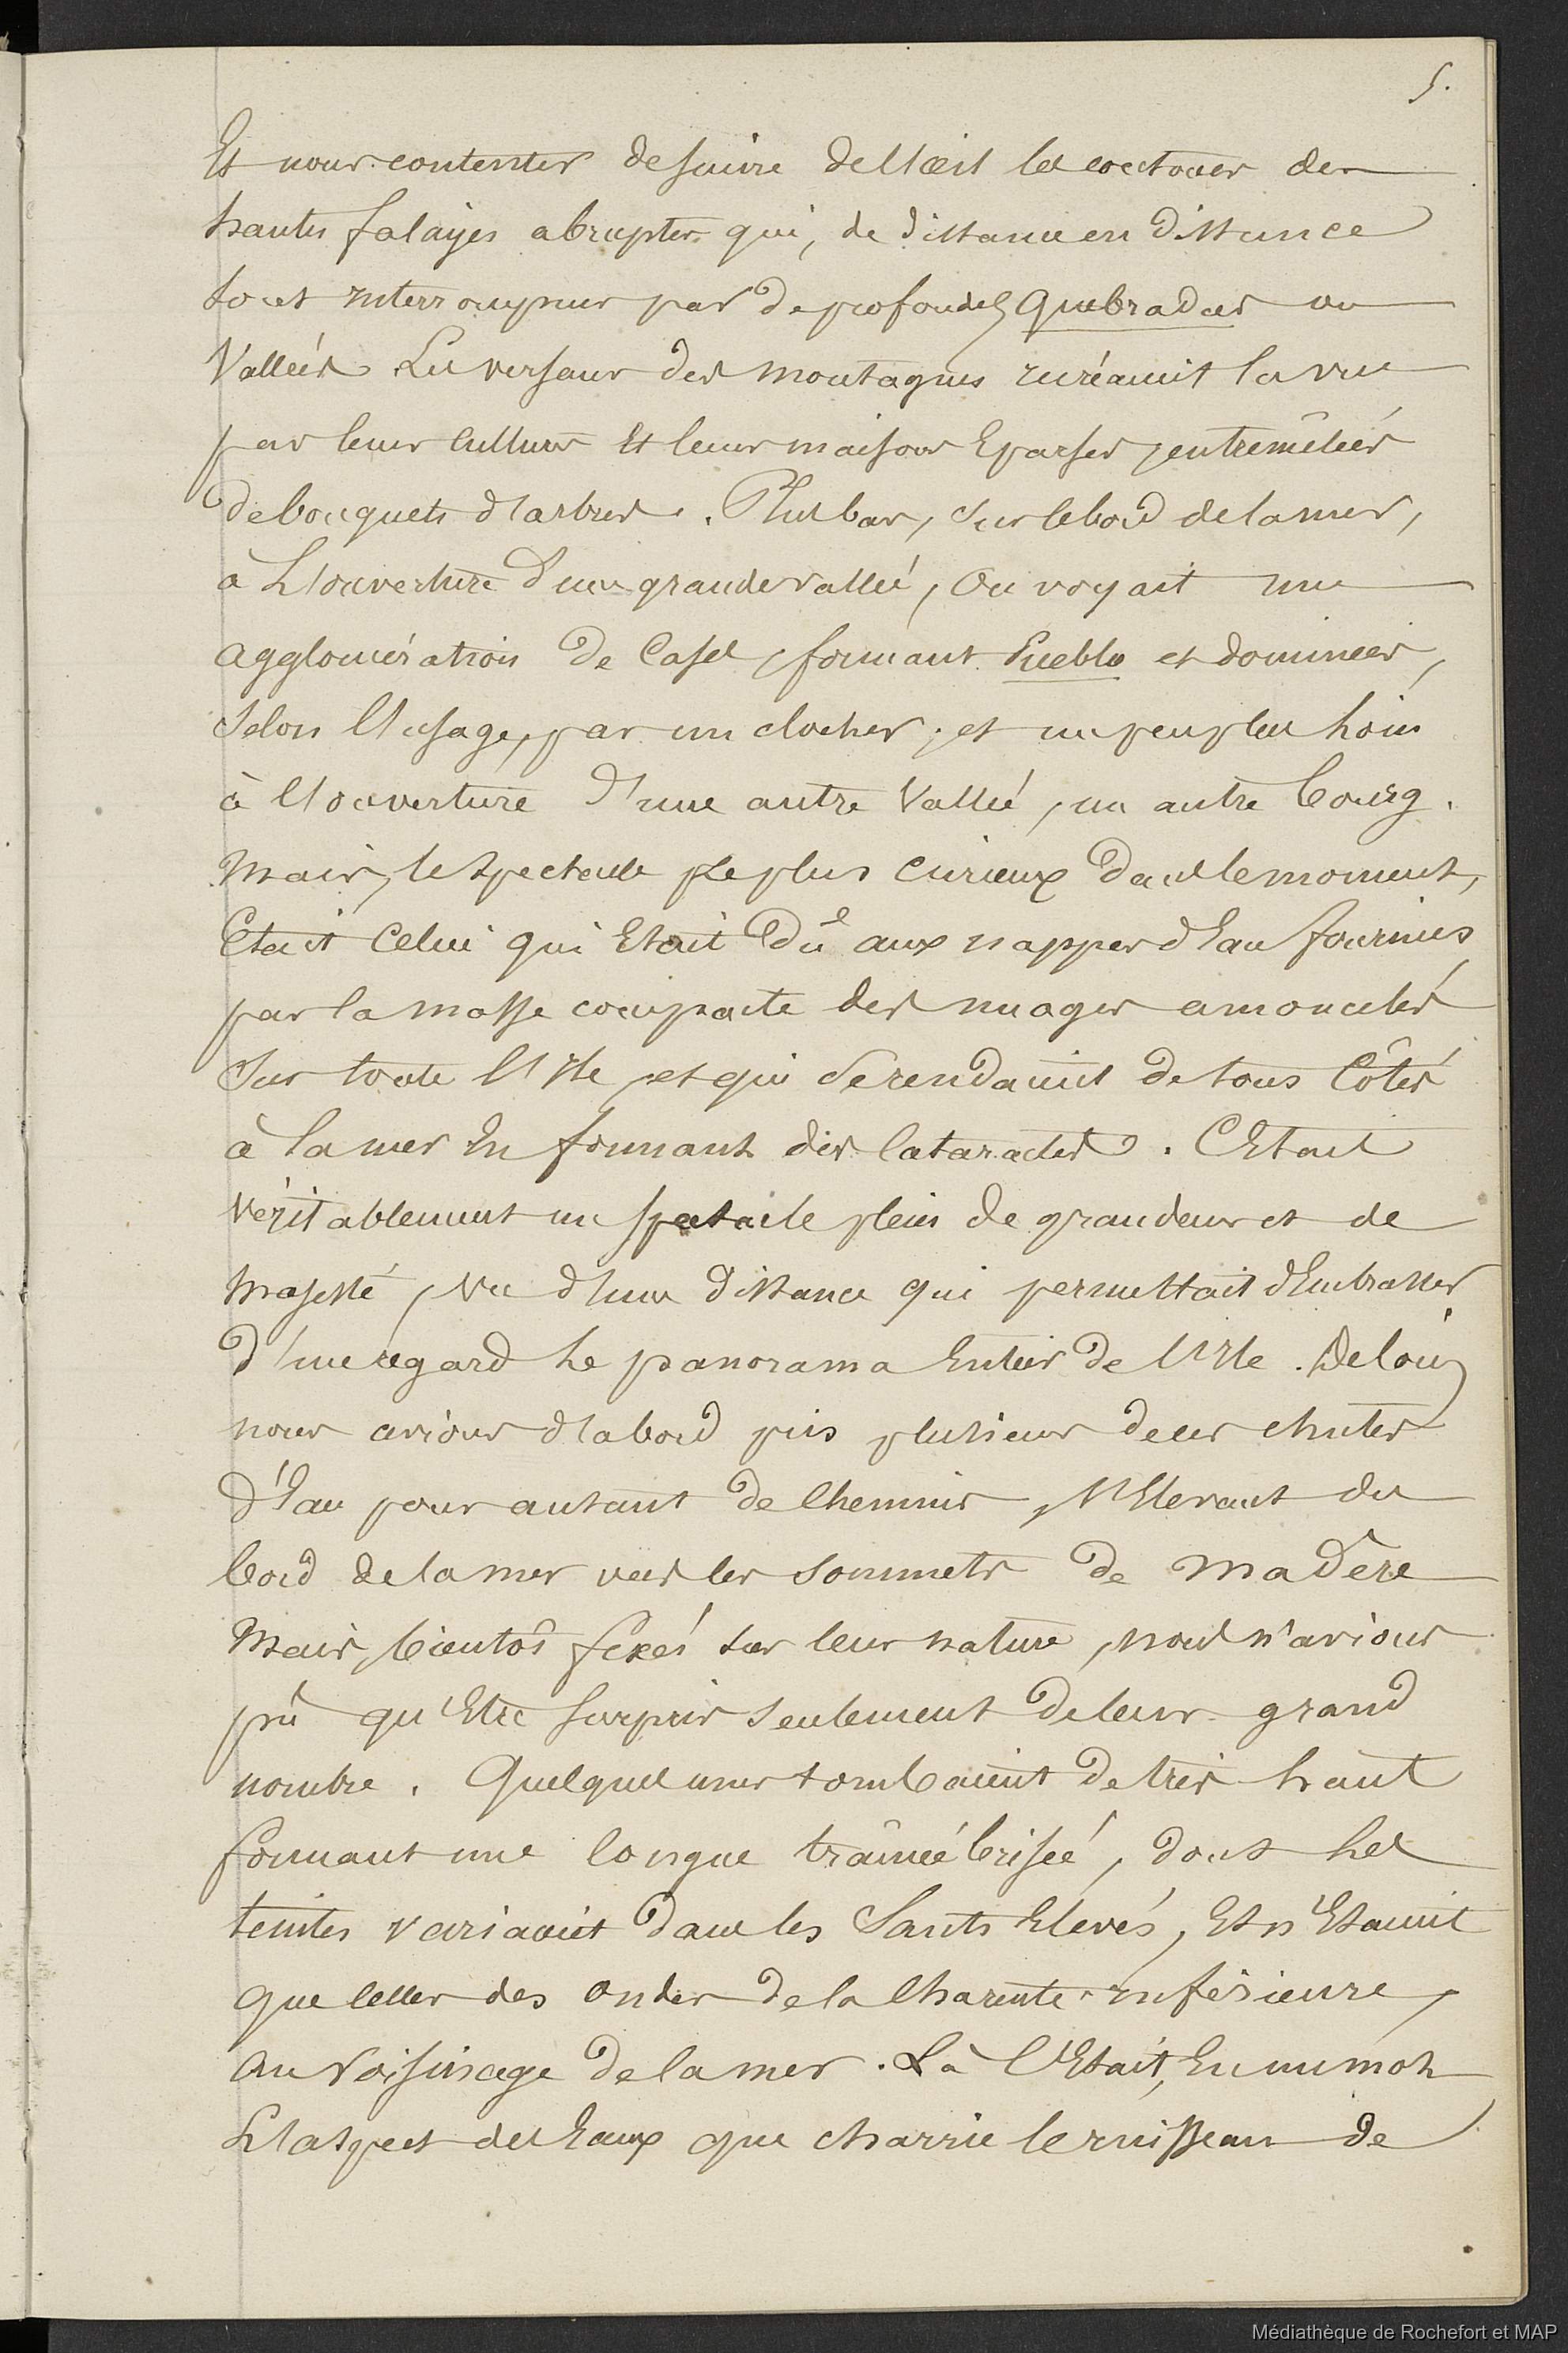 5.
Et nous contenter de suivre de l'œil les contours des
hautes falaises abruptes qui, de distance en distance
sont interrompues par de profondes quebradas ou
Vallées. Les versans des montagnes recréaient la vue
par leurs cultures Et leurs maisons Eparses, entremêlées
de bouquets d'arbres. Plus bas, sur le bord de la mer,
à L'ouverture d'une grande vallée, On voyait une
agglomération de Cases, formant Pueblo et dominées,
Selon l'usage, par un clocher, et un peu plus loin
à l'ouverture d'une autre Vallée, un autre bourg.
Mais, le Spectacle le plus curieux dans le moment,
Etait Celui qui Etait Dû aux nappes d'Eau fournies
par la masse compacte des nuages amoncelés
Sur toute l'Ile, et qui Se rendaient de tous Côtés
à la mer En formant des Cataractes. C'Etait
Véritablement un Spectacle plein de grandeur et de
Majesté, Vu d'une distance qui permettait d'Embrasser
d'un regard le panorama Entier de l'Ile. De loin
nous avions d'abord pris plusieurs de ces chutes
d'Eau pour autant de Chemins, S'Elevant du
bord de la mer vers les Sommets de Madère
Mais, bientôt fixés sur leur nature, nous n'avions
pû qu'Etre surpris Seulement de leur grand
nombre. Quelques unes tombaient de très haut
formant une longue traînée brisée, dont les
teintes variaient dans les Sauts Elevés, Et n'Etaient
que celles des ondes de la Charente-inférieure,
au Voisinage de la mer. Là C'Etait, En un mot
L'aspect des Eaux que charrie le ruisseau de
Médiathèque de Rochefort et MAP